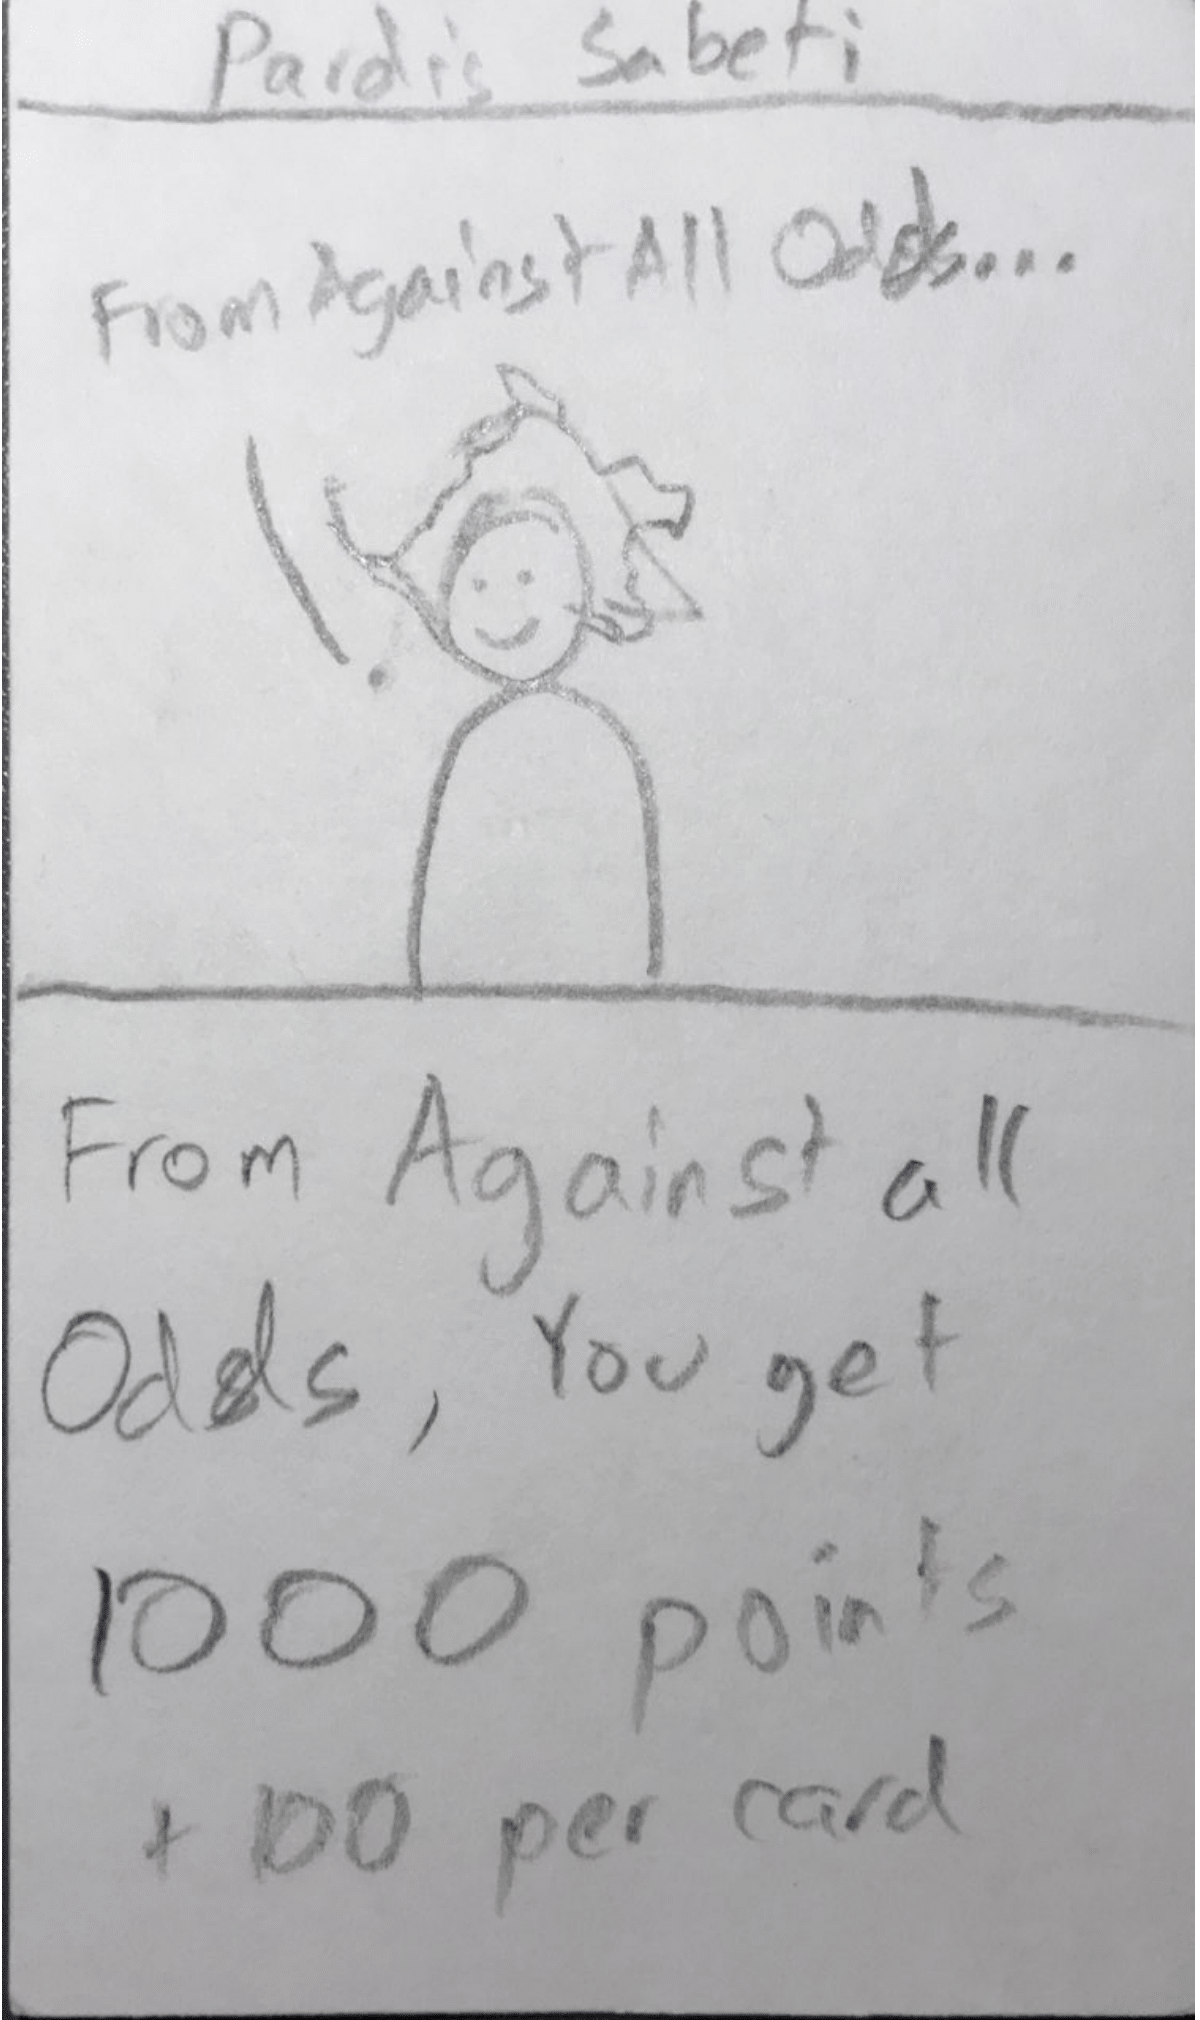 Pardis Sabeti
From Against All Odds....
!
From Against all
Odds, You get
1000 points
+ 100 per card